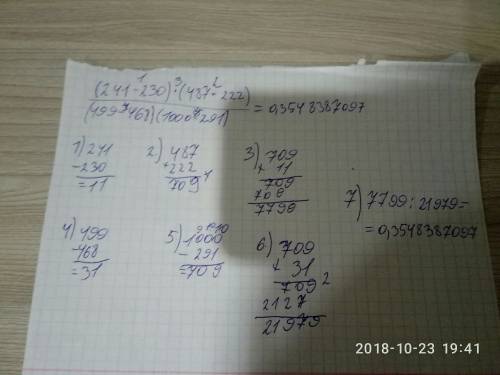 (241-230)·(487+222)
(499-468)(1000-291) = 0,3548387097
1) 241
-230
=11
2) 487
+222
709
3) 709
× 11
709
709
7799
4) 499
-468
=31
5) 1000
- 291
=709
6) 709
× 31
709
2127
21979
7) 7799 : 21979=
=0,3548387097
2018-10-23 19:41